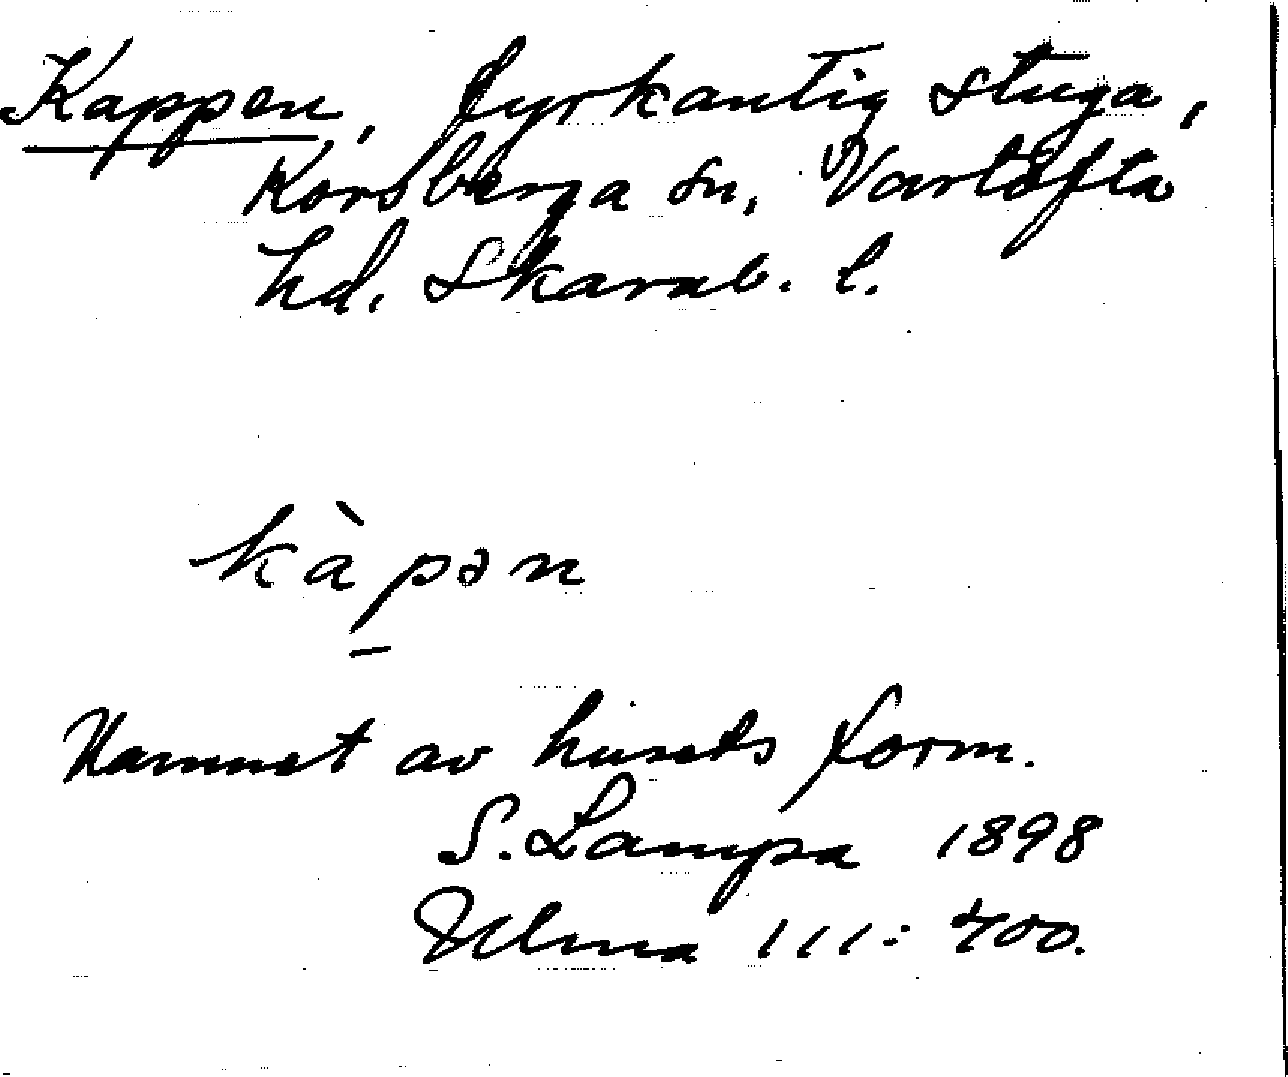 Kappen, fyrkantig stuga,
Korsberga sn, Vartofta
hd. Skarab. l.
kàpən
Namnet av husets form.
S. Lampa 1898
Ulma 111:400.